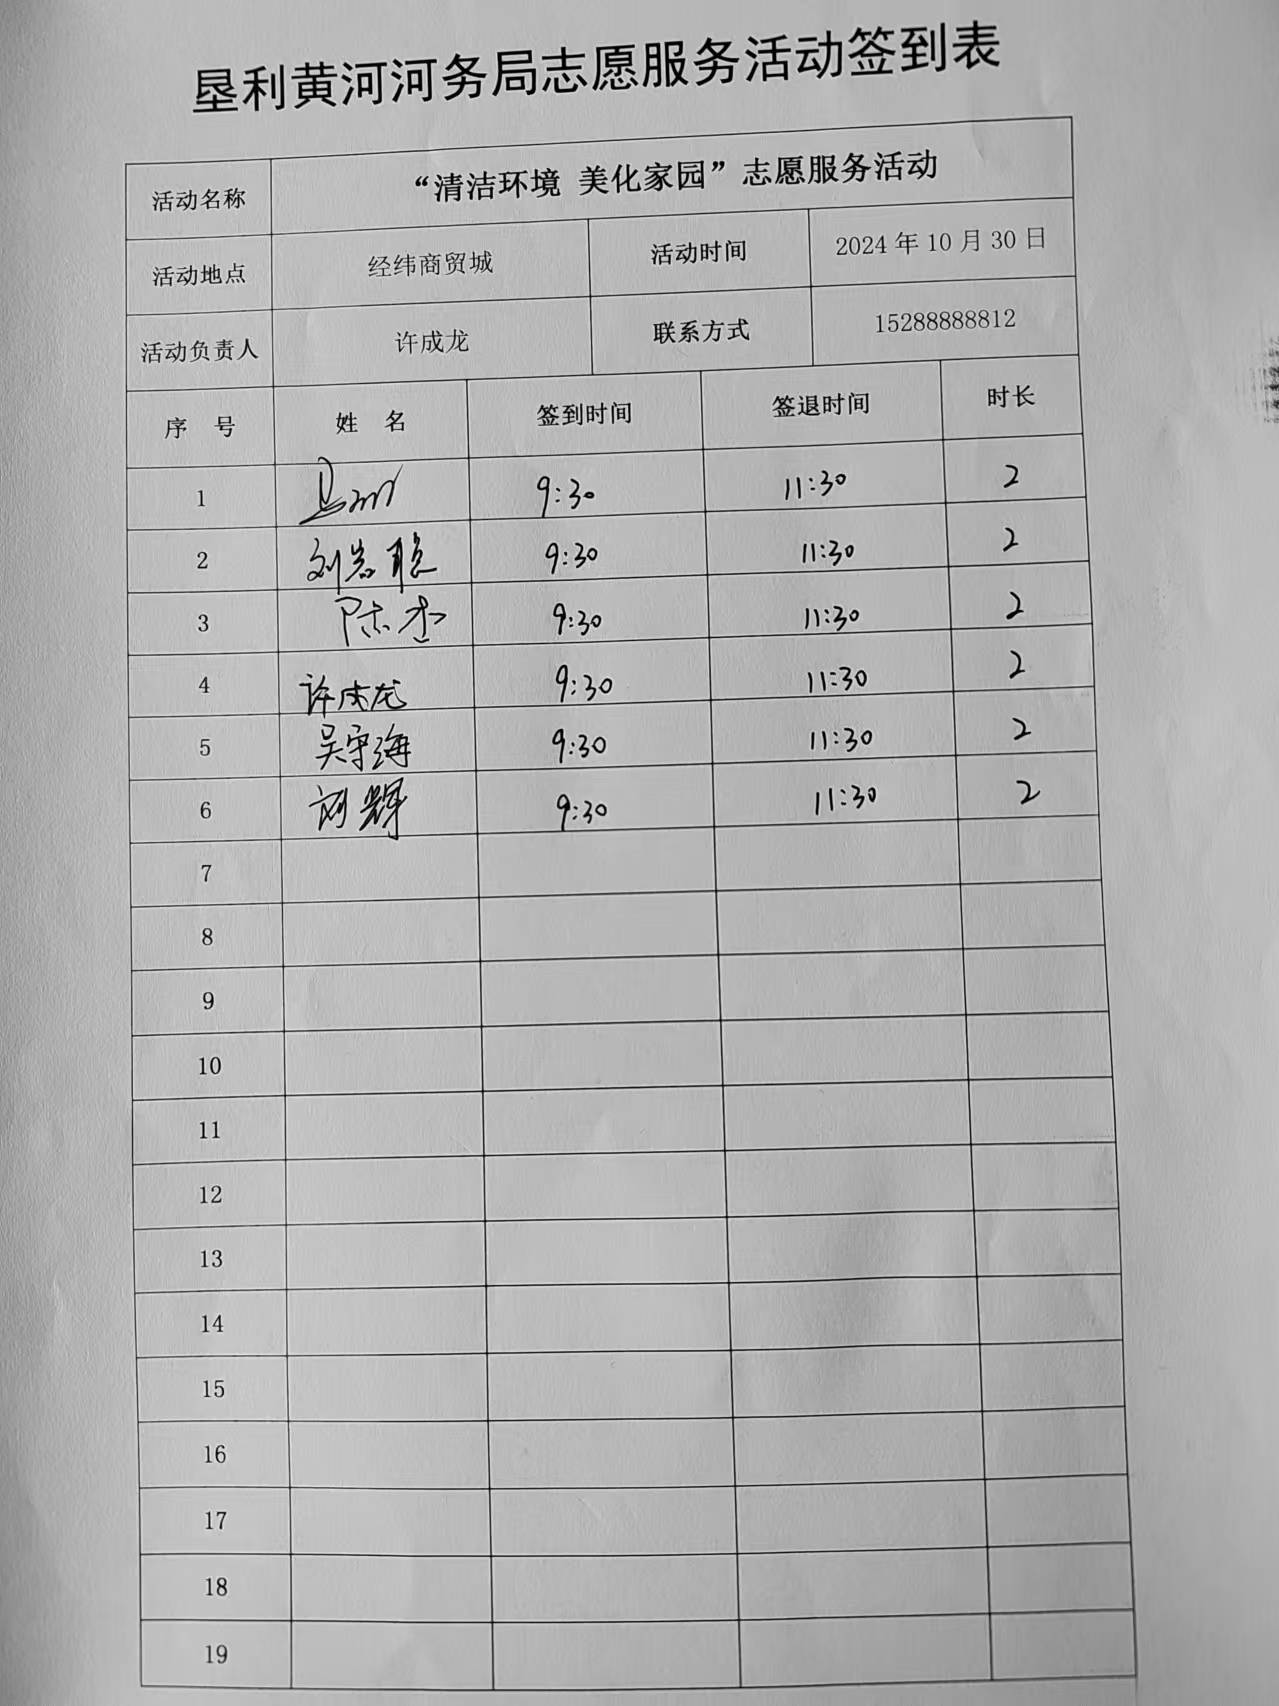 垦利黄河河务局志愿服务活动签到表
活动名称 “清洁环境 美化家园”志愿服务活动
活动地点 经纬商贸城 活动时间 2024年10月30日
活动负责人 许成龙 联系方式 15288888812
序 号 姓 名 签到时间 签退时间 时长
1 9:30 11:30 2
2 刘岩聪 9:30 11:30 2
3 陈杰 9:30 11:30 2
4 许成龙 9:30 11:30 2
5 吴守海 9:30 11:30 2
6 刘辉 9:30 11:30 2
7
8
9
10
11
12
13
14
15
16
17
18
19